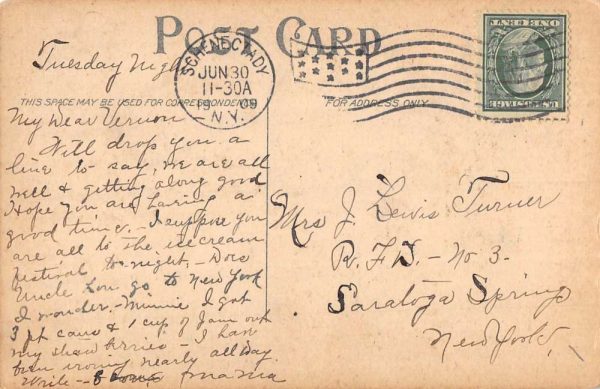 POST CARD
SCHENECTADY
JUN 30
11-30A
1909
N.Y.
THIS SPACE MAY BE USED FOR CORRESPONDENCE
FOR ADDRESS ONLY
Tuesday Night
My Dear Vernon
Will drop you a
line to say, we are all
well & getting along good
Hope you are having a
good time. - I suppose you
are all to the icecream
festival to-night, - Does
Uncle Lou go to New York
I wonder. - Minnie I got
3 pt cans & 1 cup of Jam out
my straw berries - I have
been ironing nearly all day.
Write - mama
Mrs J. Lewis Turner
R. F. D. - No 3 -
Saratoga Springs
New York,